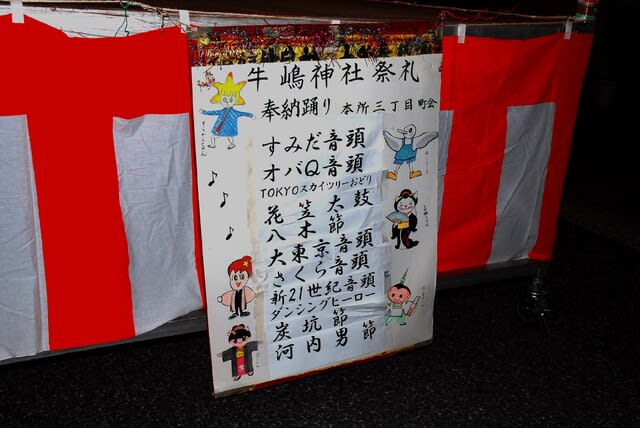 牛嶋神社祭礼
奉納踊り 本所三丁目町会
すみだ音頭
オバQ音頭
TOKYOスカイツリーおどり
花笠太鼓
八木節
大東京音頭
さくら音頭
新21世紀音頭
ダンシングヒーロー
炭坑節
河内男節